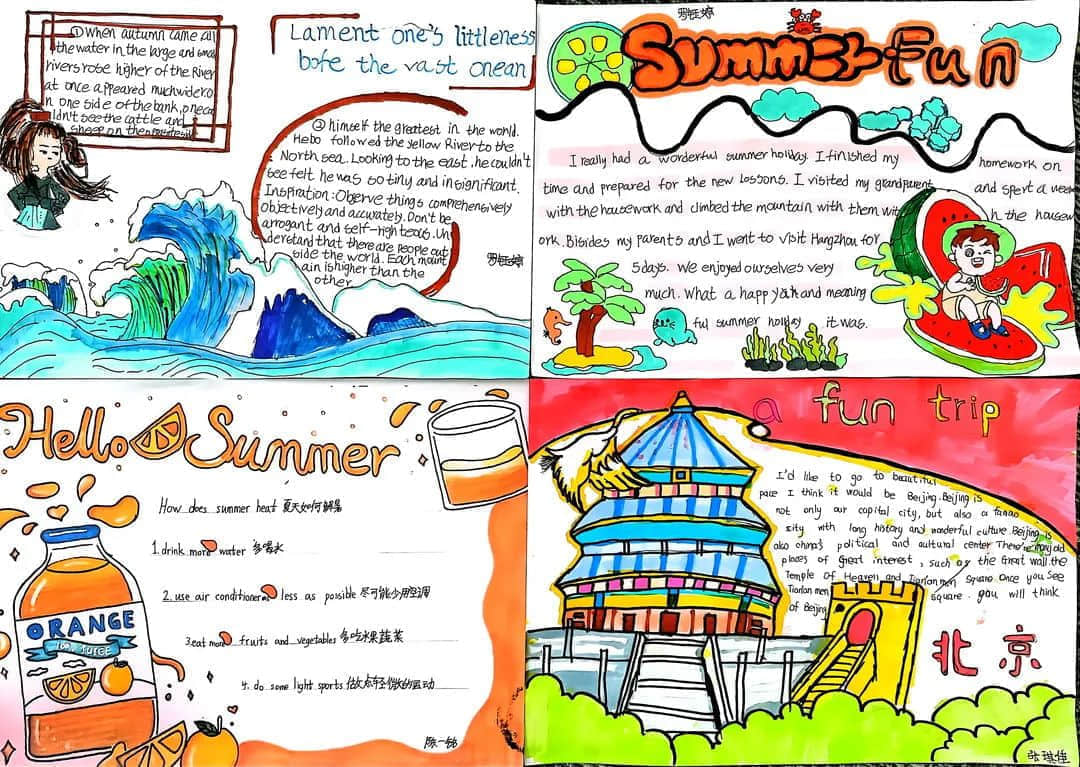 ① When autumn came all
the water in the large and small
rivers rose higher of the River
at once appeared much wider o
n one side of the bank, one co
uldn't see the cattle and
sheep on the
Lament one's littleness
bofe the vast onean
② himself the greatest in the world.
Hebo followed the yellow River to the
North sea. Looking to the east, he couldn't
see felt he was so tiny and insignificant.
Inspiration: Observe things comprehensively
objectively and accurately. Don't be
arrogant and self-righteous. Un
derstand that there are people out
side the world. Each mount
ain is higher than the
other
罗钰婷
罗钰婷
Summer fun
I really had a wonderful summer holiday. I finished my homework on
time and prepared for the new lossons. I visited my grandparents and spent a week
with the housework and climbed the mountain with them wit h the housew
ork. Bisides my parents and I went to visit Hangzhou for
5 days. We enjoyed ourselves very
much. What a happy and meaning
ful summer holiday it was.
Hello Summer
How does summer heat 夏天如何解暑
1. drink more water 多喝水
2. use air conditioner less as possible 尽可能少用空调
3. eat more fruits and vegetables 多吃水果蔬菜
4. do some light sports 做点轻微的运动
ORANGE
100% JUICE
陈一铭
a fun trip
I'd like to go to beautiful
pace I think it would be Beijing. Beijing is
not only our capital city, but also a famao
sity with long history and wonderful culture. Beijing is
also china's political and aultural center There're many old
places of Great interest, such as the Great wall, the
Temple of Heaven and Tian'an men square. Once you see
Tian'an men square. you will think
of Beijing
北京
张琪佳